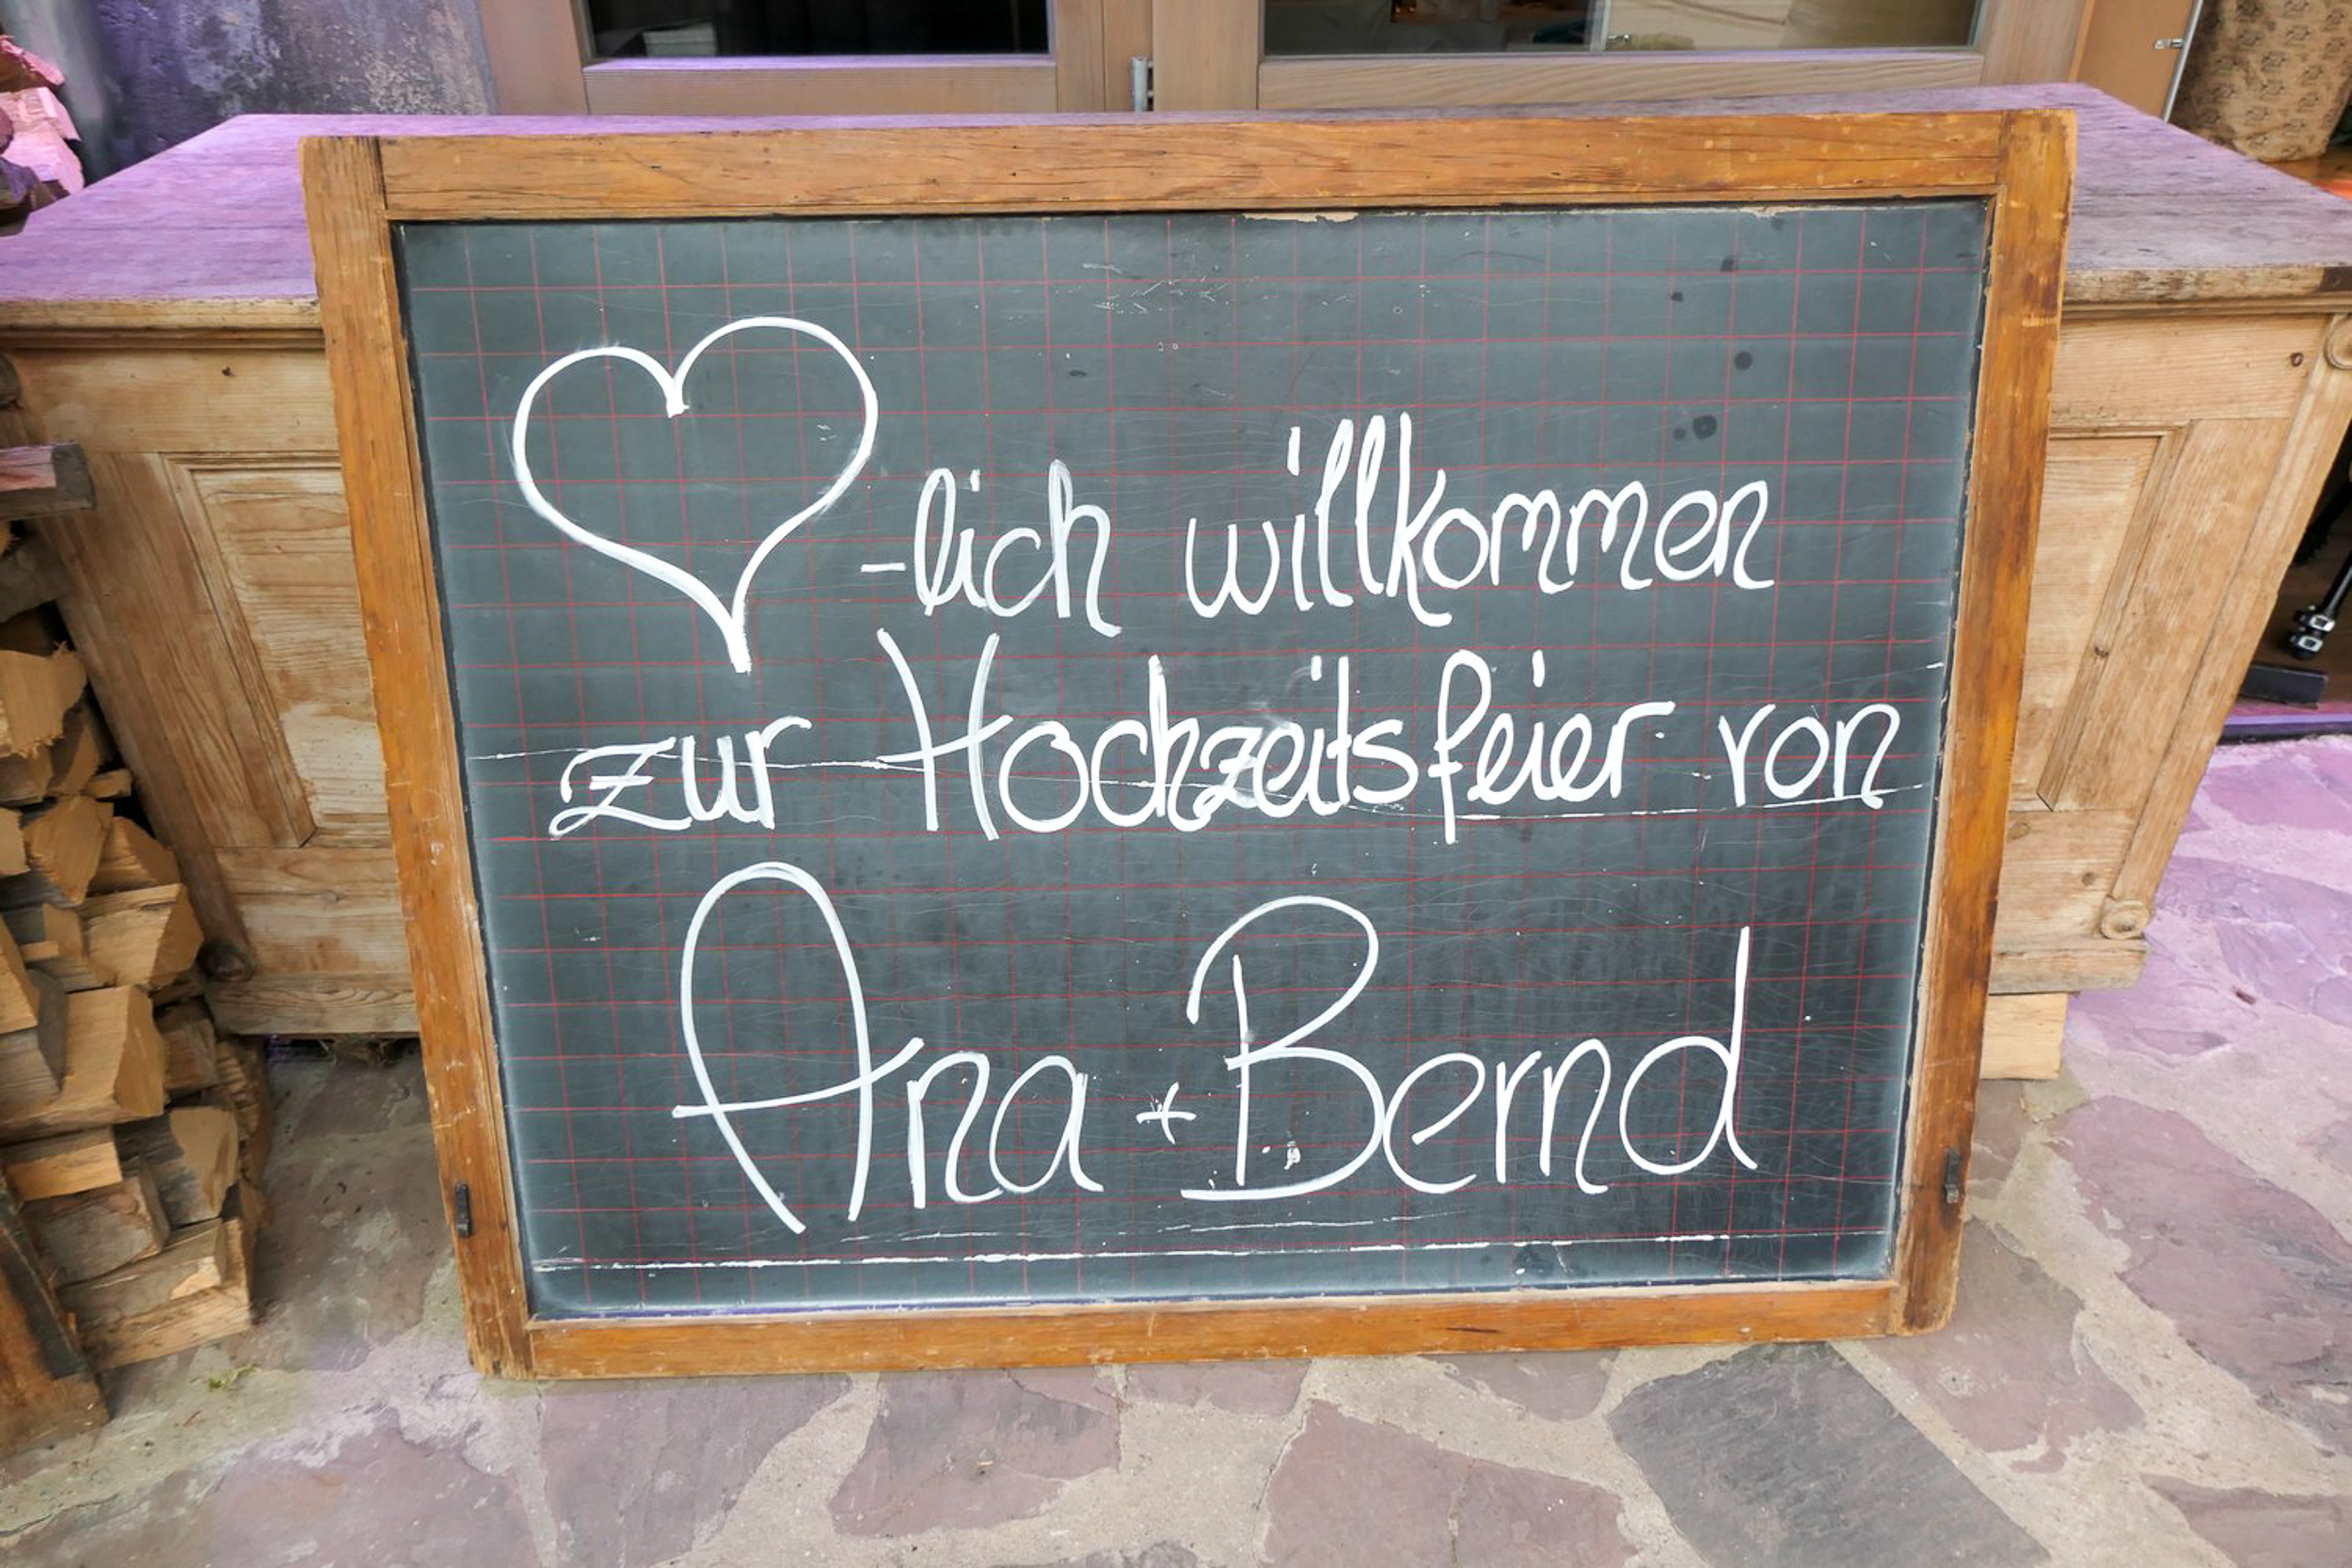 ♡-lich willkommen
zur Hochzeitsfeier von
Ana + Bernd